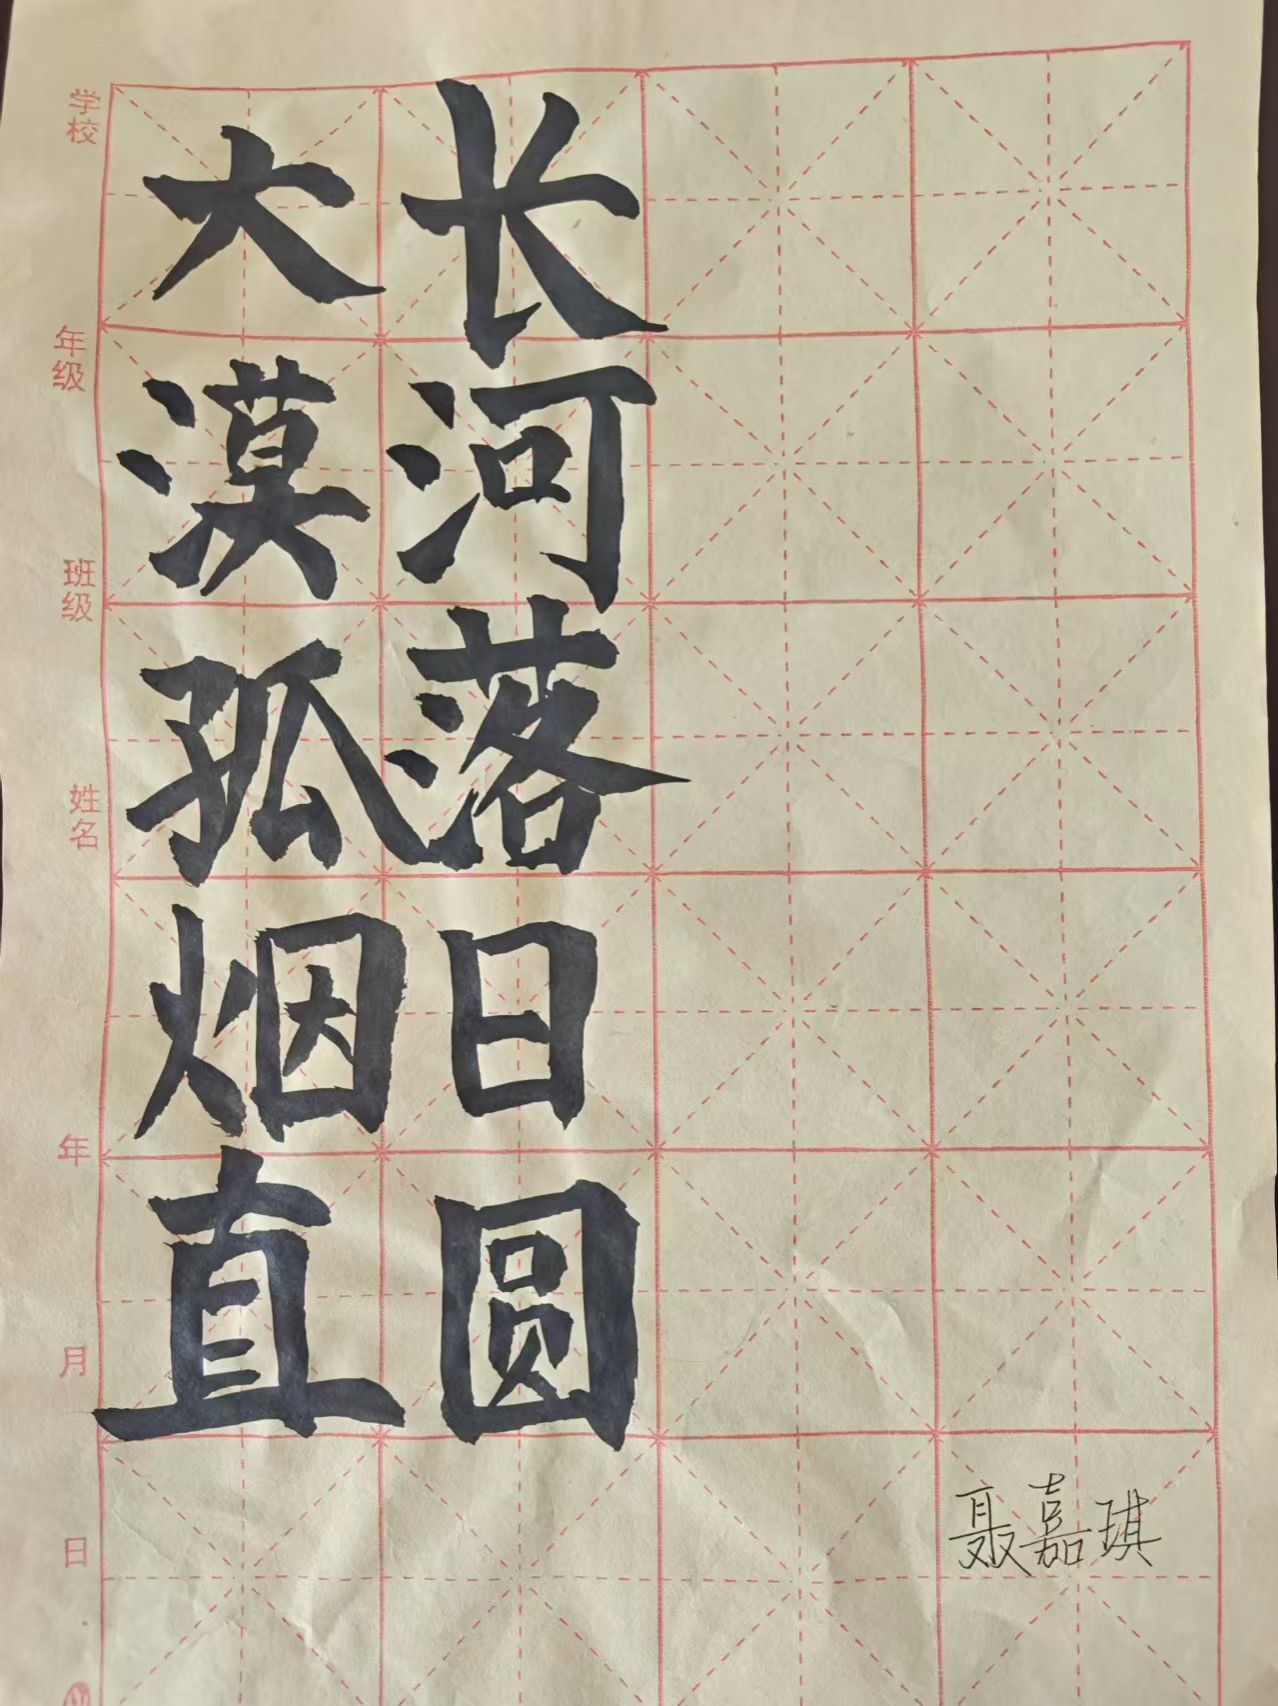 学校
年级
班级
姓名
年
月
日
大漠孤烟直
长河落日圆
聂嘉琪